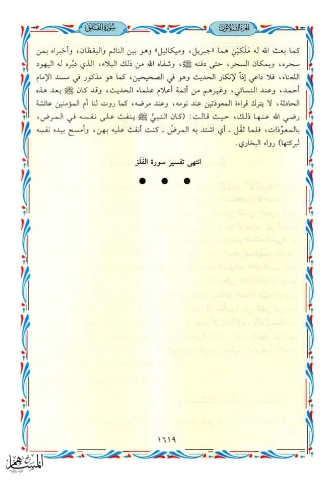 الجزء الثلاثون
سورة الفلق
كما بعث الله له مَلَكيْنِ هما «جبريل، وميكائيل» وهو بين النائم واليقظان، وأخبراه بمن
سحره، وبمكان السحر، حتى دفنه ﷺ، وشفاه الله من ذلك البلاء، الذي دبَّره له اليهود
اللعناء، فلا داعي إذاً لإنكار الحديث وهو في الصحيحين، كما هو مذكور في مسند الإمام
أحمد، وعند النسائي، وغيرهم من أئمة أعلام علماء الحديث، وقد كان ﷺ بعد هذه
الحادثة، لا يترك قراءة المعوذتين عند نومه، وعند مرضه، كما روت لنا أم المؤمنين عائشة
رضي الله عنها ذلك، حيث قالت: (كان النبيُّ ﷺ ينفث على نفسه في المرض،
بالمعوِّذات، فلما ثَقُل ـ أي اشتد به المرضُ ـ كنت أنفث عليه بهن، وأمسح بيده نفسِه
لبركتها) رواه البخاري.
انتهى تفسير سورة الفَلَق
١٦١٩